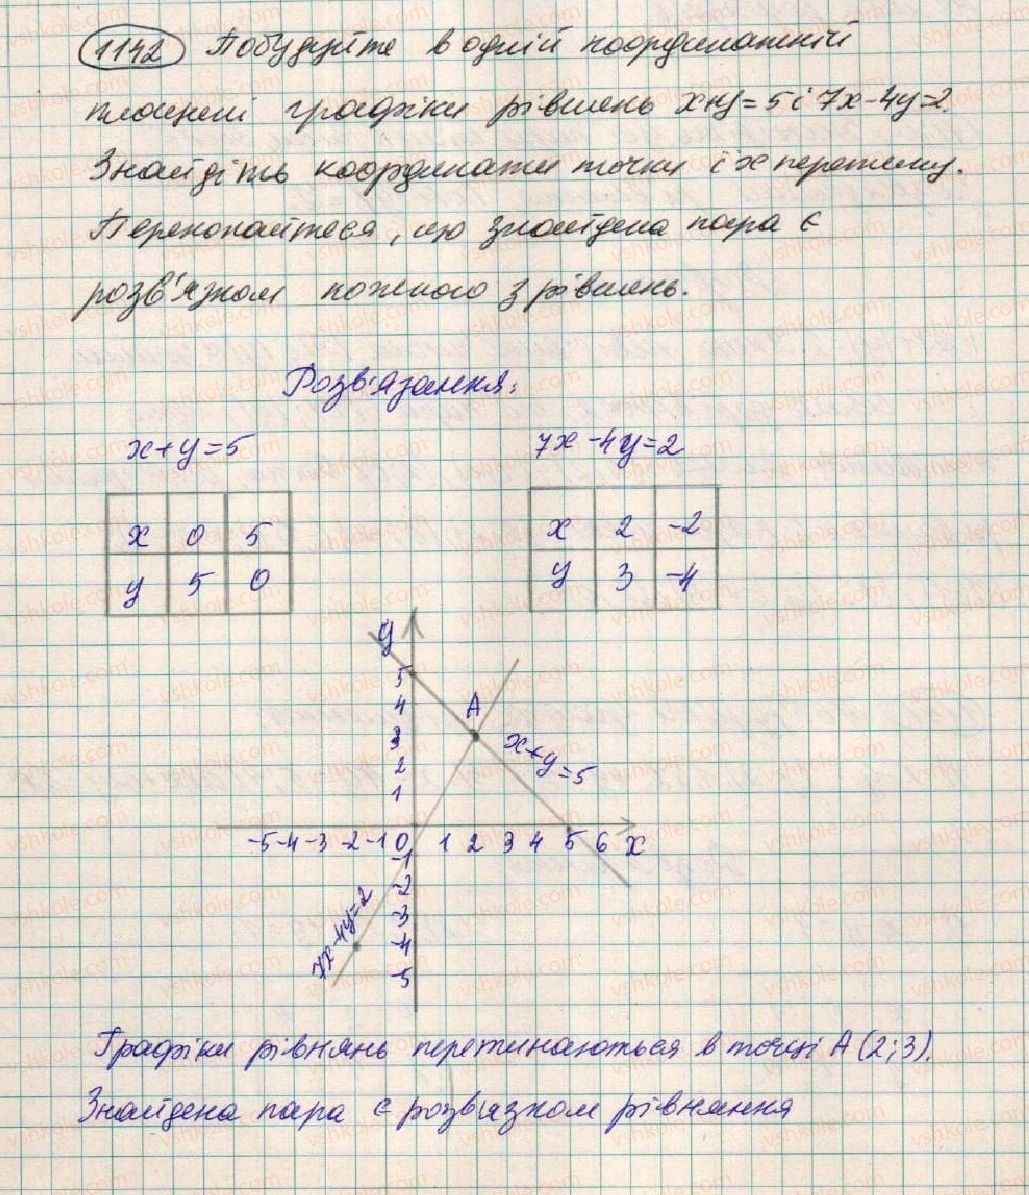 1142 Побудуйте в одній координатній
площині графіки рівнянь x+y=5 і 7x-4y=2.
Знайдіть координати точки їх перетину.
Переконайтеся, що знайдена пара є
розв'язком кожного з рівнянь.
Розв'язання:
x+y=5 7x-4y=2
x 0 5 x 2 -2
y 5 0 y 3 -4
y
5
4 A
3 x+y=5
2
1
-5 -4 -3 -2 -1 0 1 2 3 4 5 6 x
-1
-2
-3
-4
-5
7x-4y=2
Графіки рівнянь перетинаються в точці A (2;3).
Знайдена пара є розв'язком рівняння